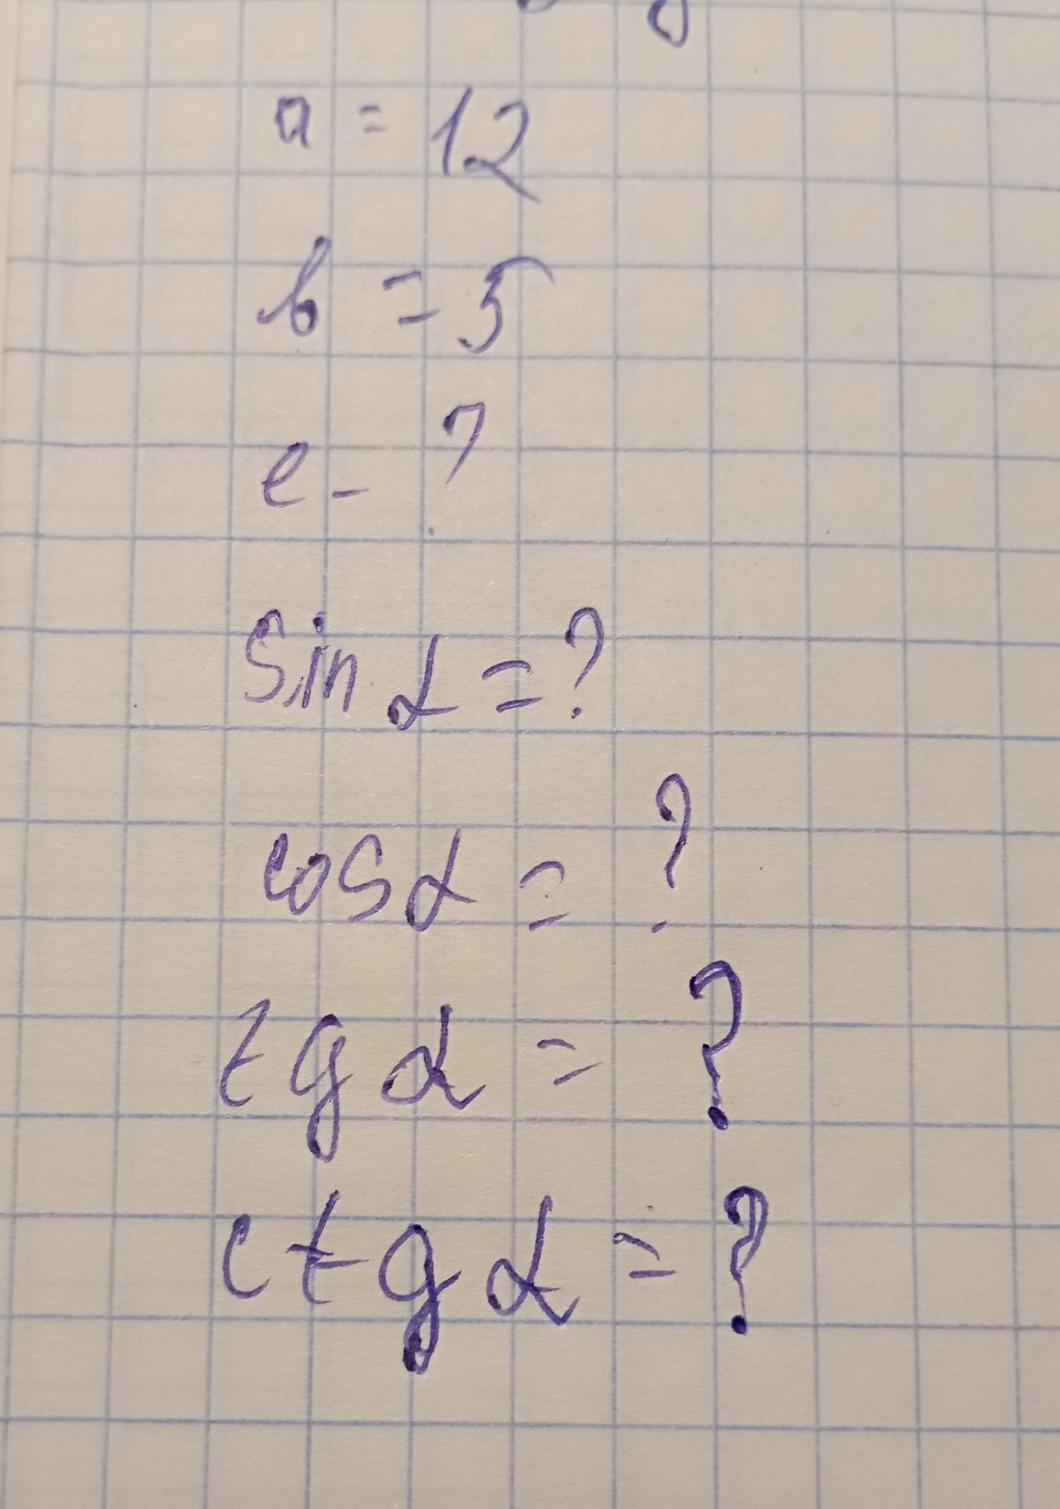 a = 12
b = 5
c - ?
sin α = ?
cos α = ?
tg α = ?
ctg α = ?